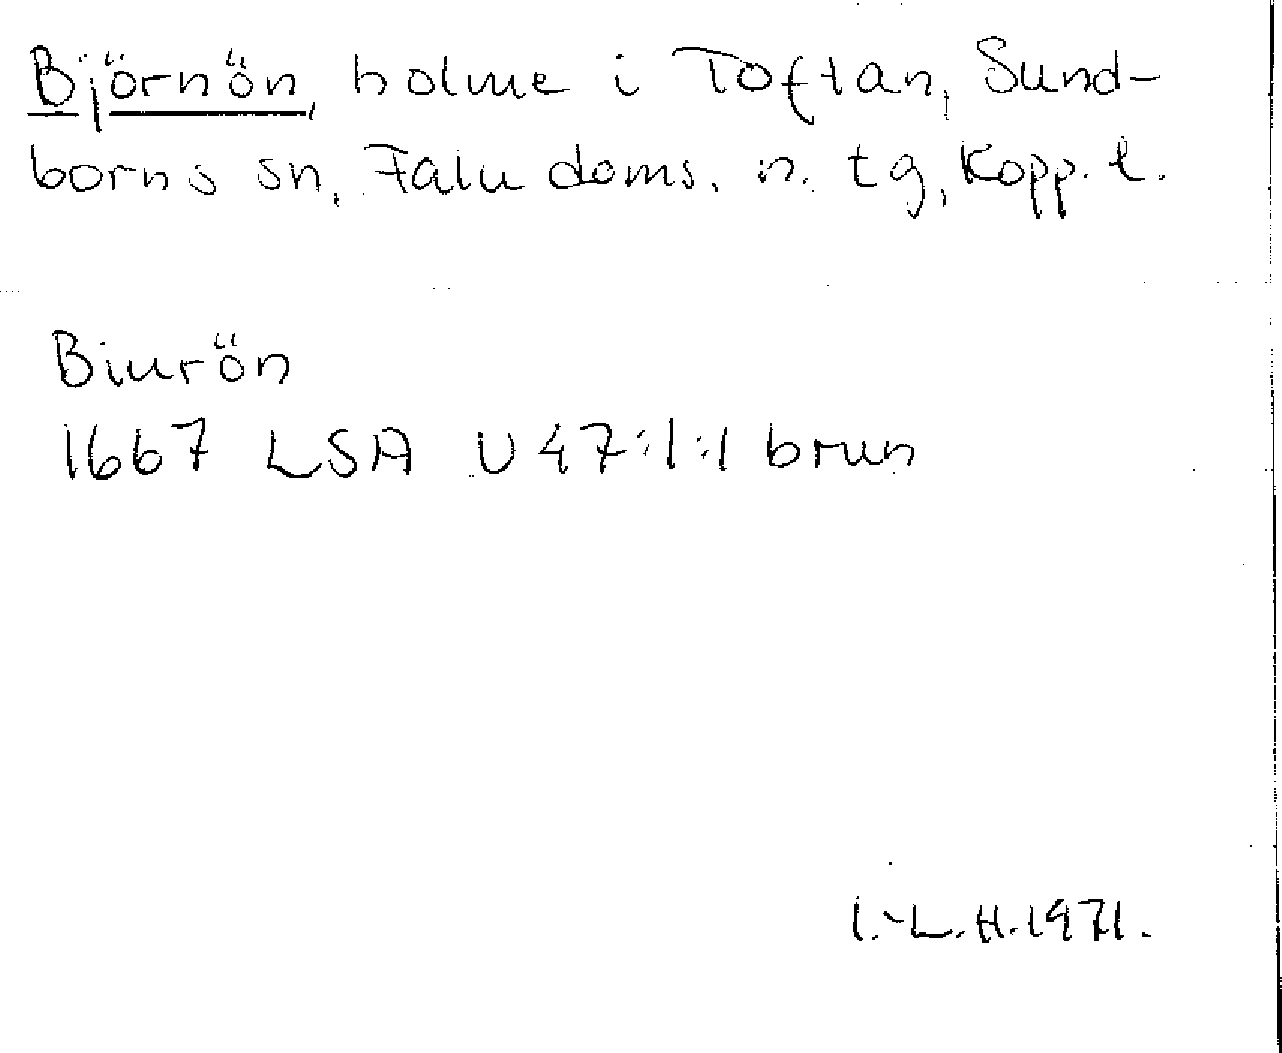 Björnön, holme i Toftan, Sund-
borns sn, Falu doms. n. tg, Kopp. l.
Biurön
1667 LSA U 47:1:1 brun
I.-L. H. 1971.